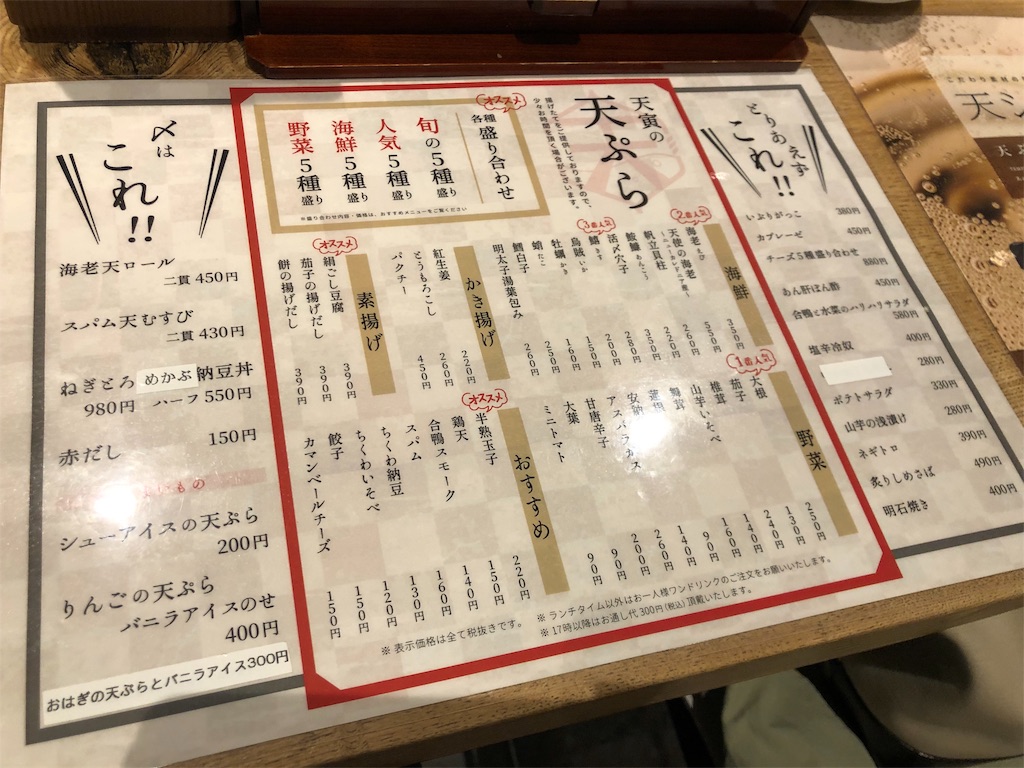 とりあえず
これ!!
いぶりがっこ 380円
カプレーゼ 450円
チーズ5種盛り合わせ 880円
あん肝ぽん酢 450円
合鴨と水菜のハリハリサラダ 580円
塩辛冷奴 400円
280円
ポテトサラダ 330円
山芋の浅漬け 280円
ネギトロ 390円
炙りしめさば 490円
明石焼き 400円
天寅の
天ぷら
揚げたてをご提供しておりますので、
少々お時間を頂く場合がございます。
オススメ
各種
盛り合わせ
旬の5種盛り
人気5種盛り
海鮮5種盛り
野菜5種盛り
※盛り合わせ内容・価格は、おすすめメニューをご覧ください
海鮮
2番人気
海老 えび 350円
天使の海老 〜ニューカレドニア産〜 550円
帆立貝柱 260円
鮟鱇 あんこう 220円
活〆穴子 350円
3番人気
鱚 きす 280円
烏賊 いか 200円
牡蠣 かき 150円
蛸 たこ 160円
鱈白子 250円
明太子湯葉包み 260円
かき揚げ
紅生姜 220円
とうもろこし 260円
パクチー 450円
素揚げ
オススメ
絹ごし豆腐 390円
茄子の揚げだし 390円
餅の揚げだし 390円
野菜
1番人気
大根 250円
茄子 130円
椎茸 240円
山芋いそべ 140円
舞茸 160円
蓮根 90円
安納 140円
アスパラガス 260円
甘唐辛子 200円
大葉 90円
ミニトマト 90円
おすすめ
オススメ
半熟玉子 220円
鶏天 150円
合鴨スモーク 140円
スパム 160円
ちくわ納豆 130円
ちくわいそべ 120円
餃子 150円
カマンベールチーズ 150円
※表示価格は全て税抜きです。
※ランチタイム以外はお一人様ワンドリンクのご注文をお願いいたします。
※17時以降はお通し代300円(税込)頂戴いたします。
〆は
これ!!
海老天ロール
二貫 450円
スパム天むすび
二貫 430円
ねぎとろ めかぶ 納豆丼
980円 ハーフ 550円
赤だし 150円
もの
シューアイスの天ぷら
200円
りんごの天ぷら
バニラアイスのせ
400円
おはぎの天ぷらとバニラアイス300円
こだわり素材の
天シ